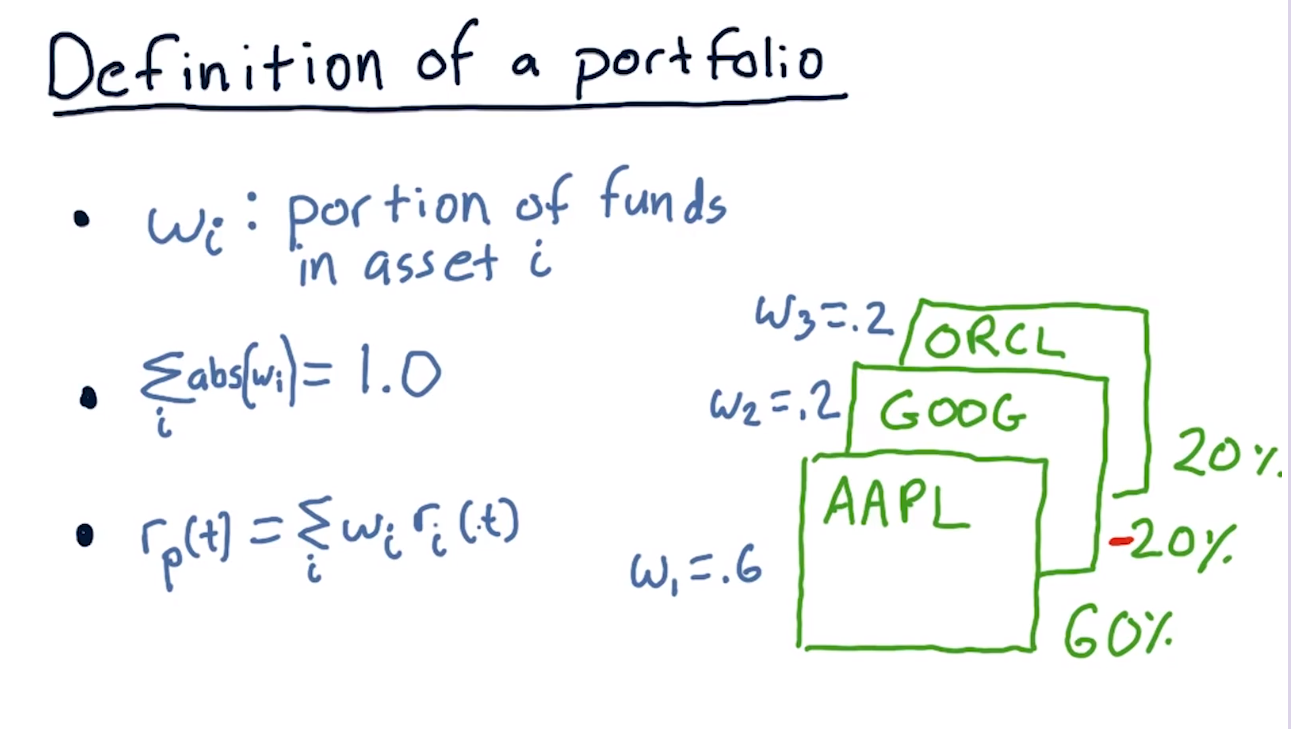 Definition of a portfolio
• wᵢ : portion of funds
in asset i
• Σᵢ abs(wᵢ) = 1.0
• rₚ(t) = Σᵢ wᵢ rᵢ(t)
w₃ = .2 ORCL
20%
w₂ = .2 GOOG
-20%
w₁ = .6 AAPL
60%